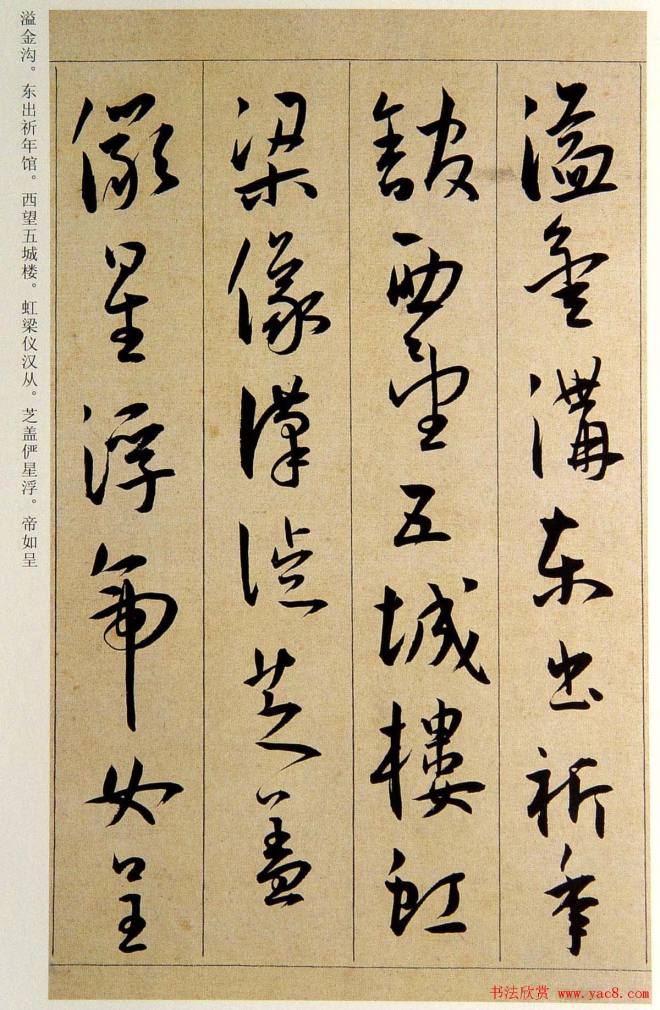 溢金溝東出祈年
舘西望五城樓虹
梁儀漢從芝蓋
儼星浮帝女呈
溢金沟。东出祈年馆。西望五城楼。虹梁仪汉从。芝盖俨星浮。帝如呈
书法欣赏 www.yac8.com